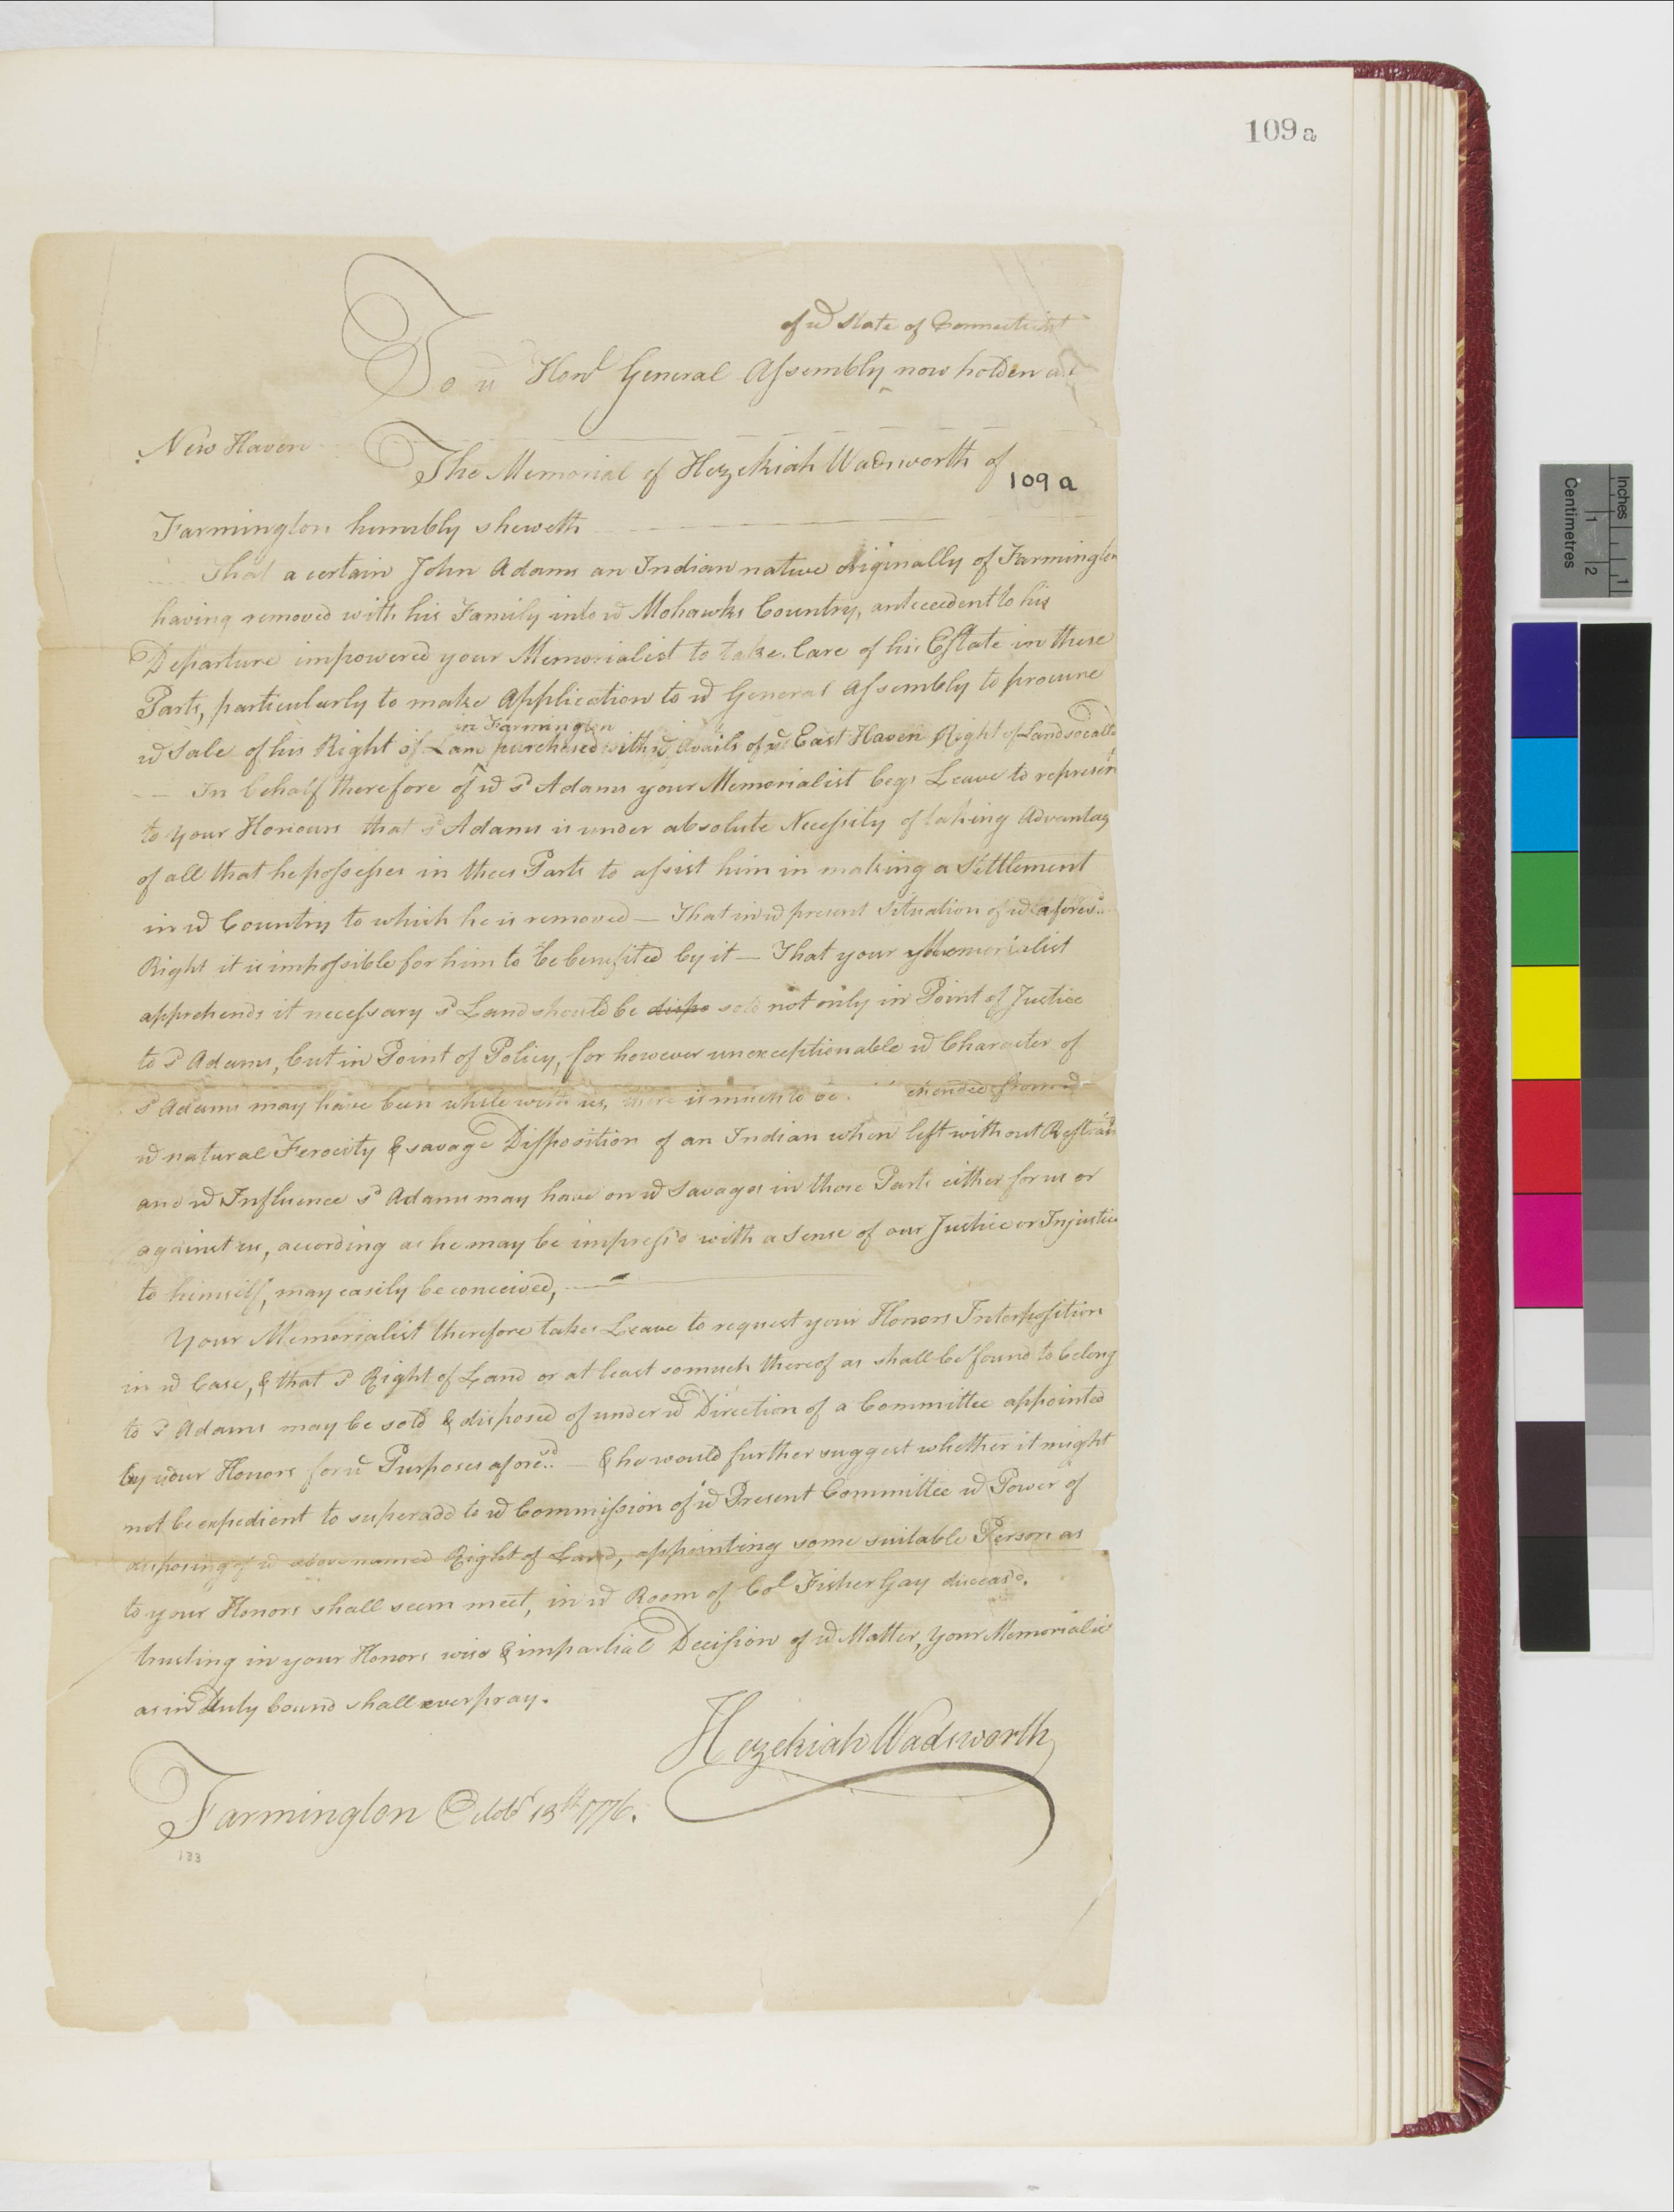 109a
of ye State of Connecticut
To ye Honl General Assembly now holden at
New Haven
The Memorial of Hezekiah Wadsworth of
109a
Farmington humbly sheweth
That a certain John Adams an Indian native originally of Farmington
having removed with his Family into ye Mohawks Country, antecedent to his
Departure impowered your Memorialist to take Care of his Estate in these
Parts, particularly to make Application to ye General Assembly to procure
in Farmington
ye Sale of his Right of Land purchased with ye Avails of ye East Haven Right of Land so calld
— In behalf therefore of ye sd Adams your Memorialist begs Leave to represent
to your Honours that sd Adams is under absolute Necessity of taking Advantag
of all that he possesses in thees Parts to assist him in making a Settlement
in ye Country to which he is removed — That in ye present Situation of ye aforesd
Right it is impossible for him to be benefited by it — That your Memorialist
apprehends it necessary sd Land should be dispo sold not only in Point of Justice
to sd Adams, but in Point of Policy, for however unexceptionable ye Character of
sd Adams may have been while with us, there is much to be ehended from
ye natural Ferocity & savage Disposition of an Indian when left without Restrain
and ye Influence sd Adams may have on ye Savages in those Parts either for us or
against us, according as he may be impress'd with a Sense of our Justice or Injustice
to himself, may easily be conceived, —
Your Memorialist therefore takes Leave to request your Honors Interposition
in ye Case, & that sd Right of Land or at least so much thereof as shall be found to belong
to sd Adams may be sold & disposed of under ye Direction of a Committee appointed
by your Honors for ye Purposes aforesd — & he would further suggest whether it might
not be expedient to superadd to ye Commission of ye Present Committee ye Power of
disposing of ye above named Right of Land, appointing some suitable Person as
to your Honors shall seem meet, in ye Room of Col Fisher Gay deceasd.
trusting in your Honors wise & impartial Decision of ye Matter, your Memorialist
as in Duty bound shall ever pray.
Hezekiah Wadsworth
Farmington Octobr 13th 1776.
133
Inches
1
1
2
Centimetres